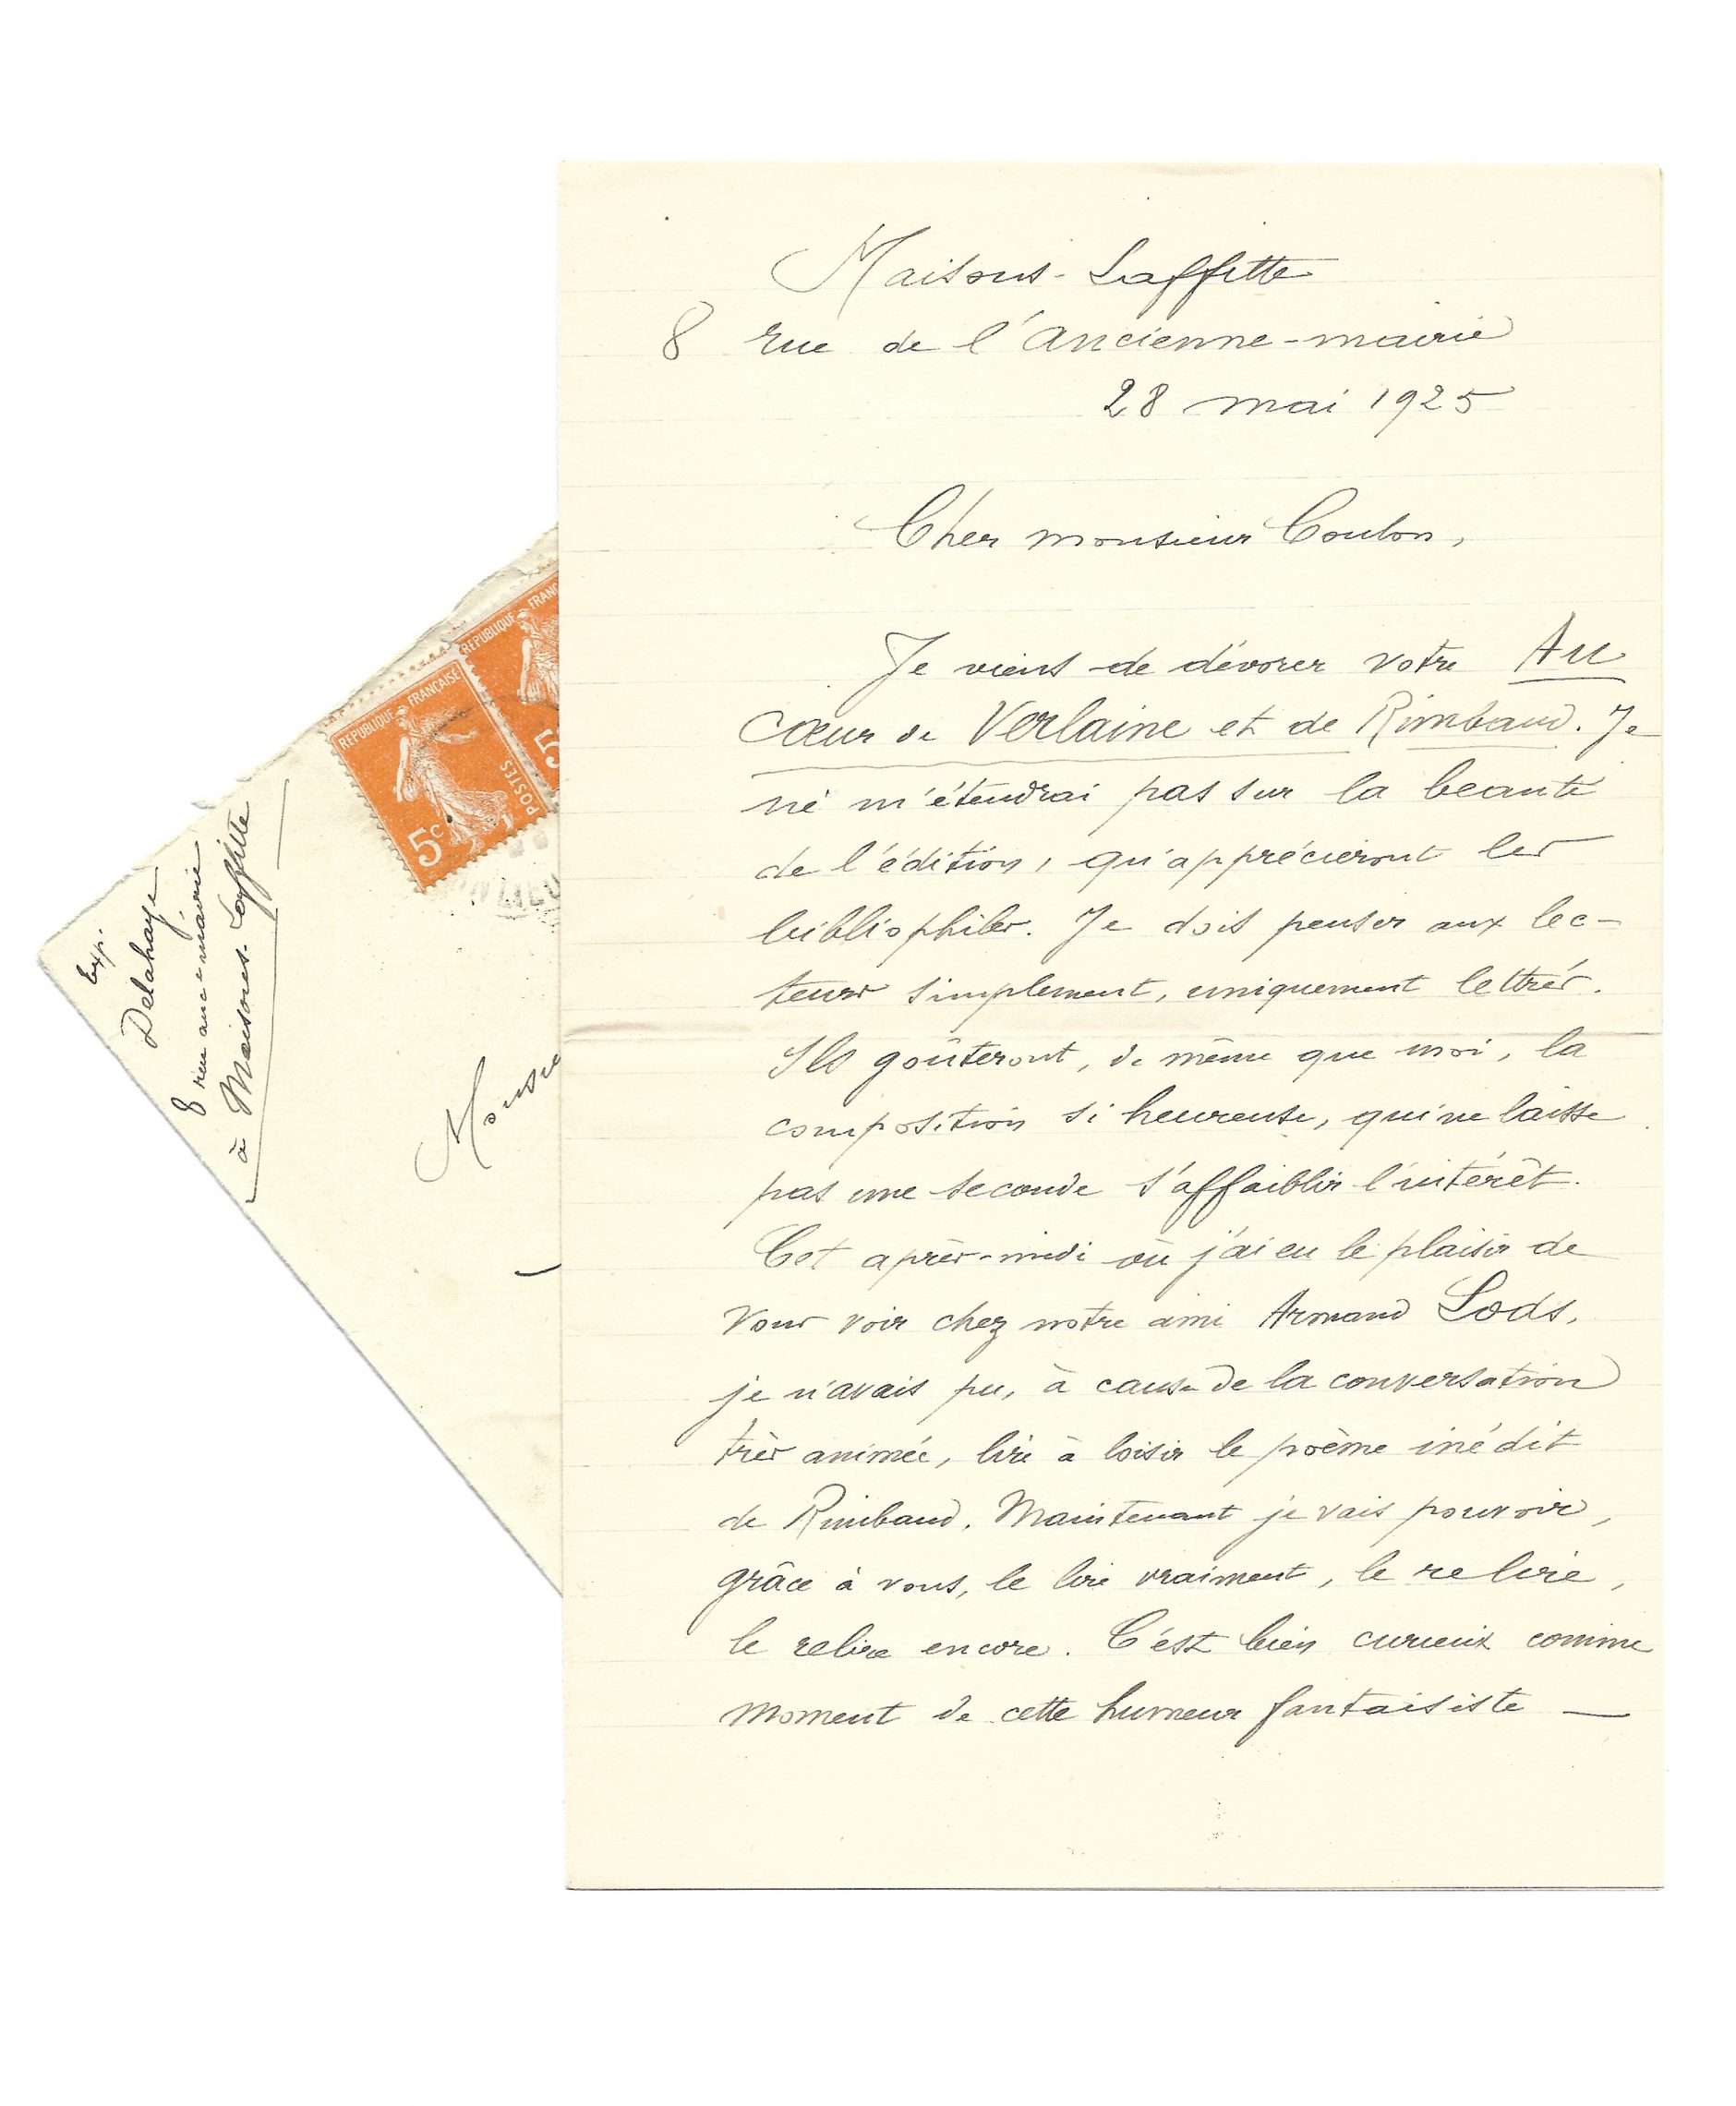 Maisons-Laffitte
8 rue de l'ancienne-mairie
28 mai 1925
Cher monsieur Coulon,
Je viens de dévorer votre Au
cœur de Verlaine et de Rimbaud. Je
ne m'étendrai pas sur la beauté
de l'édition, qu'apprécieront les
bibliophiles. Je dois penser aux lec-
teurs simplement, uniquement lettrés.
Ils goûteront, de même que moi, la
composition si heureuse, qui ne laisse
pas une seconde s'affaiblir l'intérêt.
Cet après-midi où j'ai eu le plaisir de
vous voir chez notre ami Armand Lods,
je n'avais pu, à cause de la conversation
très animée, lire à loisir le poème inédit
de Rimbaud. Maintenant je vais pouvoir,
grâce à vous, le lire vraiment, le relire,
le relire encore. C'est bien curieux comme
moment de cette humeur fantaisiste —
Exp.
Delahaye
8 rue anc-mairie
à Maisons-Laffitte
REPUBLIQUE FRANÇAISE
POSTES
5c
REPUBLIQUE FRAN
5
Monsie